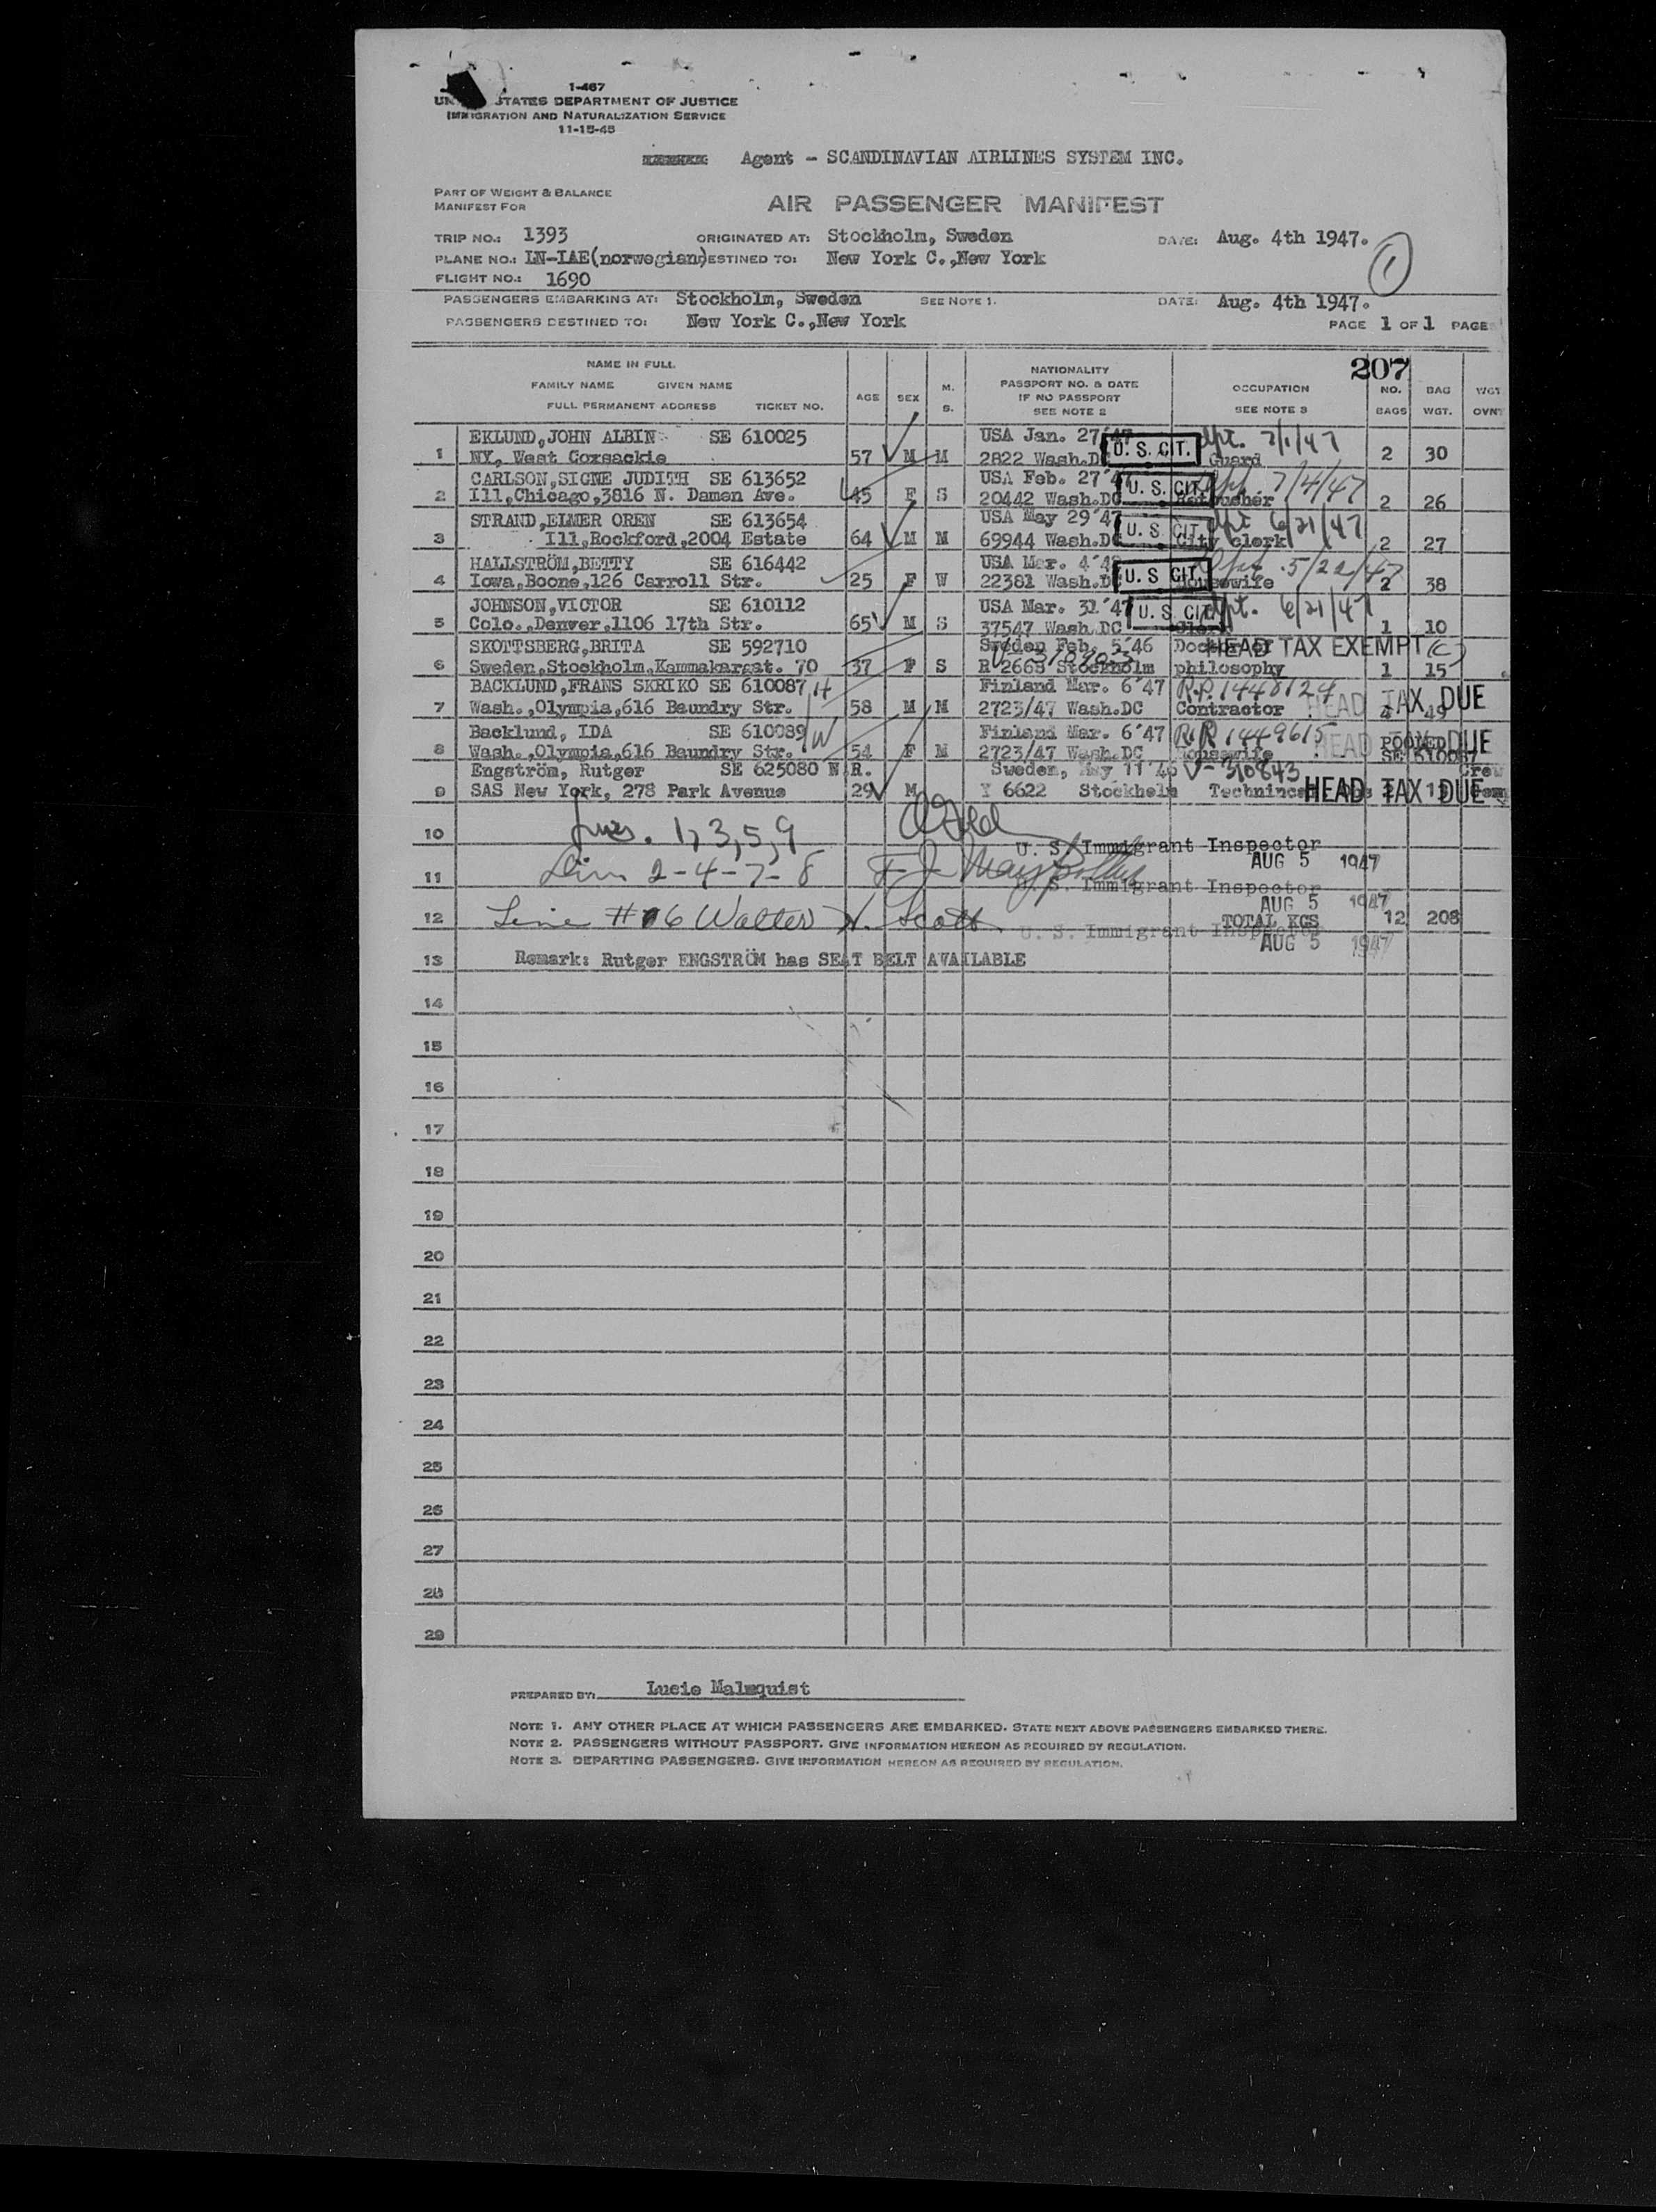 1-467
STATES DEPARTMENT OF JUSTICE
IMMIGRATION AND NATURALIZATION SERVICE
11-15-45
Agent - SCANDINAVIAN AIRLINES SYSTEM INC.
PART OF WEIGHT & BALANCE
MANIFEST FOR
AIR PASSENGER MANIFEST
TRIP NO.: 1393 ORIGINATED AT: Stockholm, Sweden DATE: Aug. 4th 1947.
PLANE NO.: LN-IAE(norwegian) DESTINED TO: New York C.,New York
1
FLIGHT NO.: 1690
PASSENGERS EMBARKING AT: Stockholm, Sweden SEE NOTE 1. DATE: Aug. 4th 1947.
PASSENGERS DESTINED TO: New York C.,New York PAGE 1 OF 1 PAGE
207
NAME IN FULL
FAMILY NAME GIVEN NAME
FULL PERMANENT ADDRESS TICKET NO.
AGE SEX M. S.
NATIONALITY
PASSPORT NO. & DATE
IF NO PASSPORT
SEE NOTE 2
OCCUPATION
SEE NOTE 3
NO. BAGS
BAG WGT.
WGT
EKLUND,JOHN ALBIN SE 610025 USA Jan. 27'47 U. S. CIT. dpt. 7/1/47
1 NY, West Coxsackie 57 M M 2822 Wash.D Guard 2 30
CARLSON,SIGNE JUDITH SE 613652 USA Feb. 27'47 U. S. CIT. 7/4/47
2 Ill,Chicago,3816 N. Damen Ave. 45 F S 20442 Wash.DC 2 26
STRAND,ELMER OREN SE 613654 USA May 29'47 U. S. CIT. dpt 6/21/47
3 Ill,Rockford,2004 Estate 64 M M 69944 Wash.DC City clerk 2 27
HALLSTRÖM,BETTY SE 616442 USA Mar. 4 U. S CIT. 5/22/47
4 Iowa,Boone,126 Carroll Str. 25 F W 22381 Wash.D Housewife 2 38
JOHNSON,VICTOR SE 610112 USA Mar. 31'47 U. S CIT. dpt. 6/21/47
5 Colo.,Denver,1106 17th Str. 65 M S 37547 Wash.DC Clerk 1 10
SKOTTSBERG,BRITA SE 592710 Sweden Feb. 5'46 Doctor of HEAD TAX EXEMPT (C)
6 Sweden,Stockholm,Kammakargat. 70 37 F S R 2665 Stockholm philosophy 1 15
BACKLUND,FRANS SKRIKO SE 610087 H Finland Mar. 6'47 R.P. 1448124
7 Wash.,Olympia,616 Baundry Str. 58 M M 2723/47 Wash.DC Contractor 4 49 HEAD TAX DUE
Backlund, IDA SE 610089 W Finland Mar. 6'47 R.P. 1449615 HEAD TAX DUE
8 Wash.,Olympia,616 Baundry Str. 54 F M 2723/47 Wash.DC Housewife POOLED SE 610087
Engström, Rutger SE 625080 N.R. Sweden, May 11'46 V-310843
9 SAS New York, 278 Park Avenue 29 M Y 6622 Stockholm HEAD TAX DUE
10 Lines. 1, 3, 5, 9
U. S. Immigrant Inspector
AUG 5 1947
11 Lin 2-4-7-8
U. S. Immigrant Inspector
AUG 5 1947
12 Line # 6 Walter H. Scott TOTAL KGS 12 208
U. S. Immigrant Inspector
AUG 5 1947
13 Remark: Rutger ENGSTRÖM has SEAT BELT AVAILABLE
14
15
16
17
18
19
20
21
22
23
24
25
26
27
28
29
PREPARED BY: Lucie Malmquist
NOTE 1. ANY OTHER PLACE AT WHICH PASSENGERS ARE EMBARKED. STATE NEXT ABOVE PASSENGERS EMBARKED THERE.
NOTE 2. PASSENGERS WITHOUT PASSPORT. GIVE INFORMATION HEREON AS REQUIRED BY REGULATION.
NOTE 3. DEPARTING PASSENGERS. GIVE INFORMATION HEREON AS REQUIRED BY REGULATION.